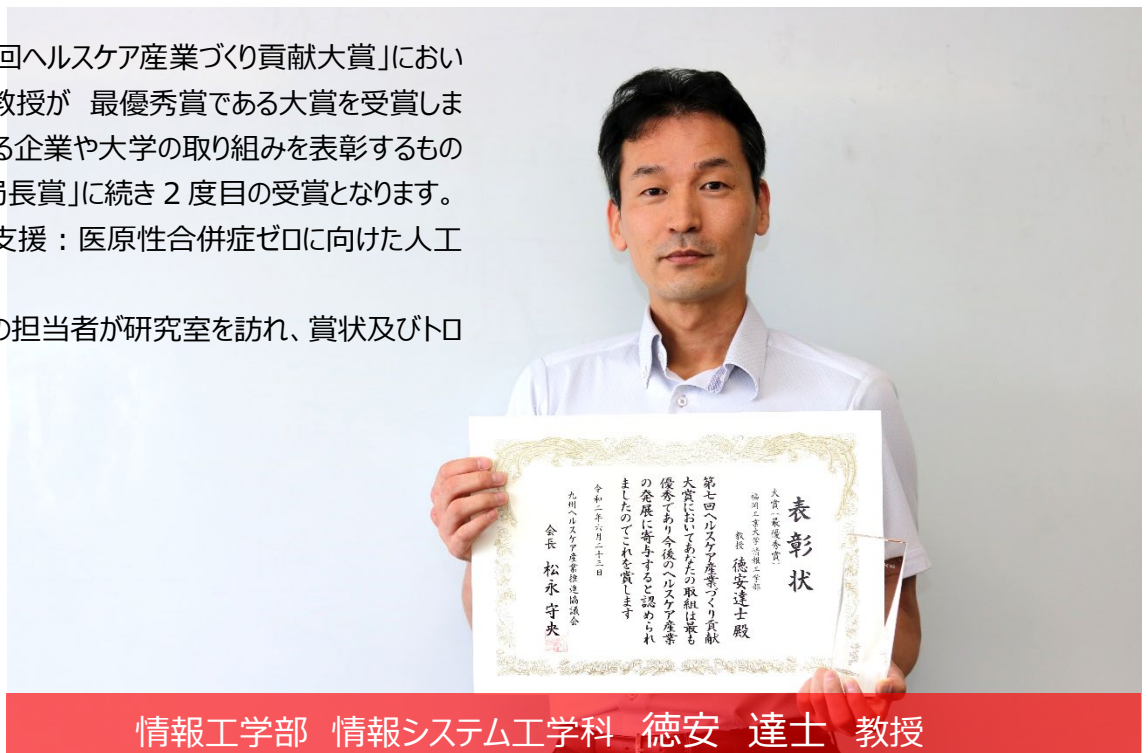 回ヘルスケア産業づくり貢献大賞」におい
教授が 最優秀賞である大賞を受賞しま
る企業や大学の取り組みを表彰するもの
局長賞」に続き2度目の受賞となります。
支援：医原性合併症ゼロに向けた人工
の担当者が研究室を訪れ、賞状及びトロ
表彰状
大賞(最優秀賞)
福岡工業大学情報工学部
教授 徳安達士殿
第七回ヘルスケア産業づくり貢献
大賞においてあなたの取組は最も
優秀であり今後のヘルスケア産業
の発展に寄与すると認められ
ましたのでこれを賞します
令和二年六月二十三日
九州ヘルスケア産業推進協議会
会長 松永守央
情報工学部 情報システム工学科 徳安 達士 教授